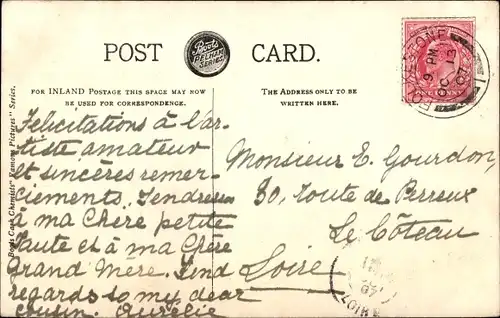 POST CARD.
Boots
PELHAM
SERIES
FOR INLAND POSTAGE THIS SPACE MAY NOW
BE USED FOR CORRESPONDENCE.
THE ADDRESS ONLY TO BE
WRITTEN HERE.
FOLKESTONE
9 PM
OC 13
07
Boots Cash Chemists' "Famous Pictures" Series.
Félicitations à l'ar-
tiste amateur
et sincères remer-
ciements. Tendresses
à ma chère petite
Tante et à ma Chère
Grand Mère. Send
regards to my dear
cousin. Aurélie
Monsieur E. Gourdon,
30, route de Perreux
Le Côteau
Loire
LOIRE